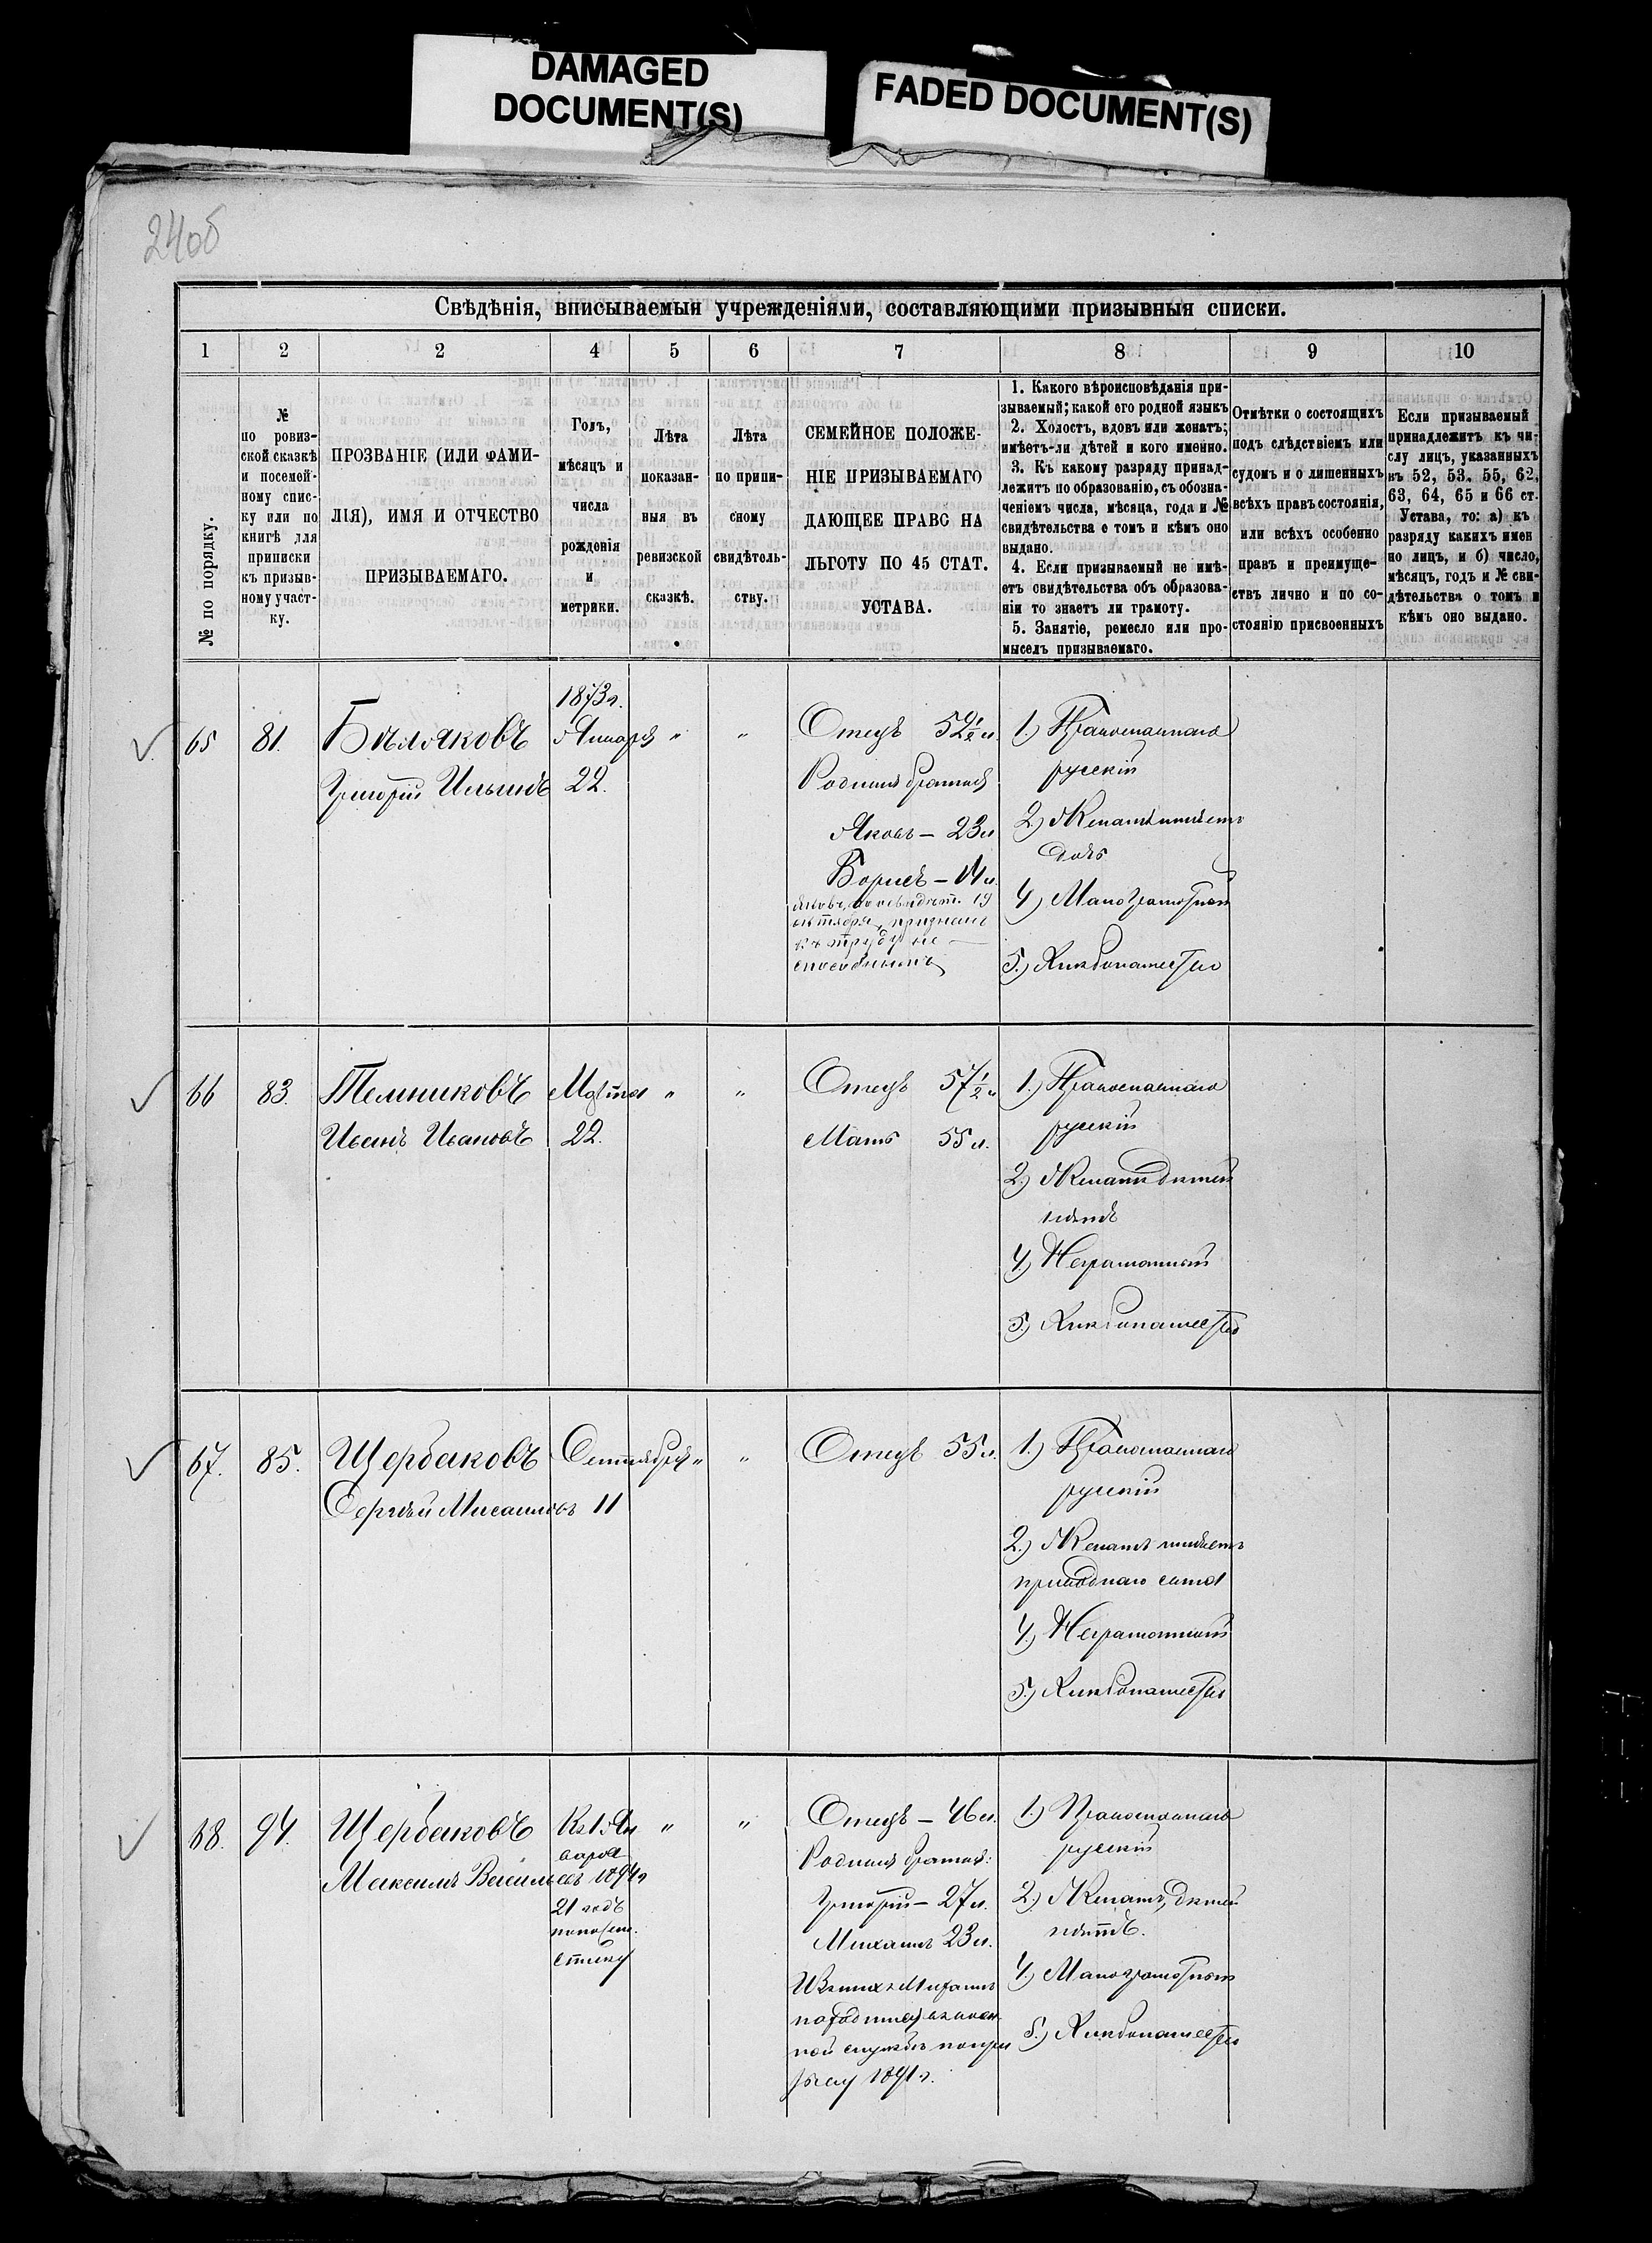 DAMAGED
DOCUMENT(S)
FADED DOCUMENT(S)
240б
Свѣдѣнія, вписываемыя учрежденіями, составляющими призывныя списки.
1 2 2 4 5 6 7 8 9 10
№ по порядку.
№
по ровиз-
ской сказкѣ
и посемей-
ному спис-
ку или по
книгѣ для
приписки
къ призыв-
ному участ-
ку.
ПРОЗВАНІЕ (ИЛИ ФАМИ-
ЛІЯ), ИМЯ И ОТЧЕСТВО
ПРИЗЫВАЕМАГО.
Годъ,
мѣсяцъ и
числа
рожденія
и
метрики.
Лѣта
показан-
ныя въ
ревизской
сказкѣ.
Лѣта
по припи-
сному
свидѣтель-
ству.
СЕМЕЙНОЕ ПОЛОЖЕ-
НІЕ ПРИЗЫВАЕМАГО
ДАЮЩЕЕ ПРАВО НА
ЛЬГОТУ ПО 45 СТАТ.
УСТАВА.
1. Какого вѣроисповѣданія при-
зываемый; какой его родной языкъ
2. Холостъ, вдовъ или женатъ;
имѣетъ-ли дѣтей и кого именно.
3. Къ какому разряду принад-
лежитъ по образованію, съ обозна-
ченіемъ числа, мѣсяца, года и №
свидѣтельства о томъ и кѣмъ оно
выдано.
4. Если призываемый не имѣ-
етъ свидѣтельства объ образова-
ніи то знаетъ ли грамоту.
5. Занятіе, ремесло или про-
мыселъ призываемаго.
Отмѣтки о состоящихъ
подъ слѣдствіемъ или
судомъ и о лишенныхъ
всѣхъ правъ состоянія,
или всѣхъ особенно
правъ и преимуще-
ствъ лично и по со-
стоянію присвоенныхъ
Если призываемый
принадлежитъ къ чи-
слу лицъ, указанныхъ
въ 52, 53, 55, 62,
63, 64, 65 и 66 ст.
Устава, то: а) къ
разряду какихъ имен
но лицъ, и б) число,
мѣсяцъ, годъ и № сви-
дѣтельства о томъ и
кѣмъ оно выдано.
65 81. Бѣляковъ
Григорій Ильинъ
1873 г.
Января
22.
" "
Отецъ 52½ л.
Родныя братья
Яковъ – 23 л
Борисъ – 14 л.
Яковъ, по освидѣт. 19
октября, признанъ
къ труду не
способнымъ
1.) Православнаго
русскій
2.) Женатъ имѣетъ
дочь
4.) Малограмотный
5.) Хлѣбопашество
66 83. Темниковъ
Иванъ Ивановъ
Марта
22.
" "
Отецъ 57½ л
Мать 55 л.
1.) Православнаго
русскій
2.) Женатъ дѣтей
нѣтъ
4.) Неграмотный
5.) Хлѣбопашество
67. 85. Щербаковъ
Сергѣй Мисаиловъ
Сентября
11
" "
Отецъ 55 л.
1.) Православнаго
русскій
2.) Женатъ имѣетъ
приводнаго сына
4.) Неграмотный
5.) Хлѣбопашество
68. 94. Щербаковъ
Максимъ Васильевъ
Къ 1 Ян
варя
1894 г
21 годъ
по посем.
списку
" "
Отецъ – 46 л.
Родныя братья:
Григорій – 27 л.
Михаилъ 23 л.
Изъ нихъ Михаилъ
находится въ воен
ной службѣ по при
зыву 1891 г.
1.) Православнаго
русскій
2.) Женатъ, дѣтей
нѣтъ.
4.) Малограмотный
5.) Хлѣбопашество